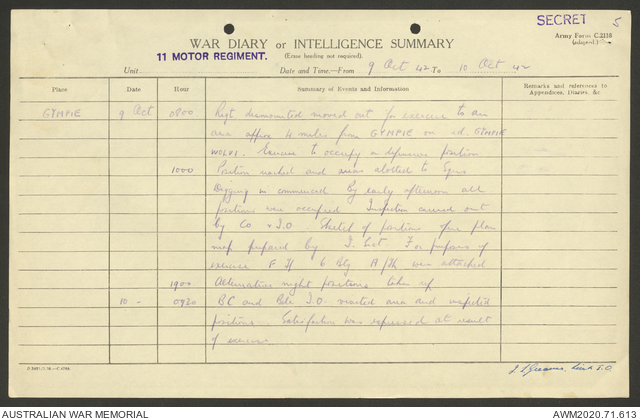 SECRET 5
Army Form C.2118
(adapted.)
WAR DIARY or INTELLIGENCE SUMMARY
(Erase heading not required).
11 MOTOR REGIMENT.
Unit Date and Time—From 9 Oct 42 To 10 Oct 42
Place Date Hour Summary of Events and Information Remarks and references to
Appendices, Diaries, &c
GYMPIE 9 Oct 0800 Regt dismounted moved out for exercise to an
area approx 4 miles from GYMPIE on rd. GYMPIE
WOLVI. Exercise to occupy a defensive position
1000 Position reached and areas allotted to Sqns
Digging in commenced By early afternoon all
positions were occupied Inspection carried out
by Co + I.O. Sketch of position fire plan
map prepared by I. Sect. For purposes of
exercise 6 Bty A/Tk was attached
1900 Alternative night positions taken up
10 - 0930 BC and Bde I.O. visited area and inspected
positions. Satisfaction was expressed at result
of exercise.
Lieut I.O.
AUSTRALIAN WAR MEMORIAL AWM2020.71.613